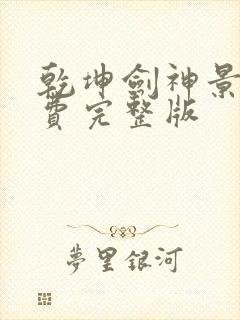 乾坤劍神景
費完整版
夢里銀河